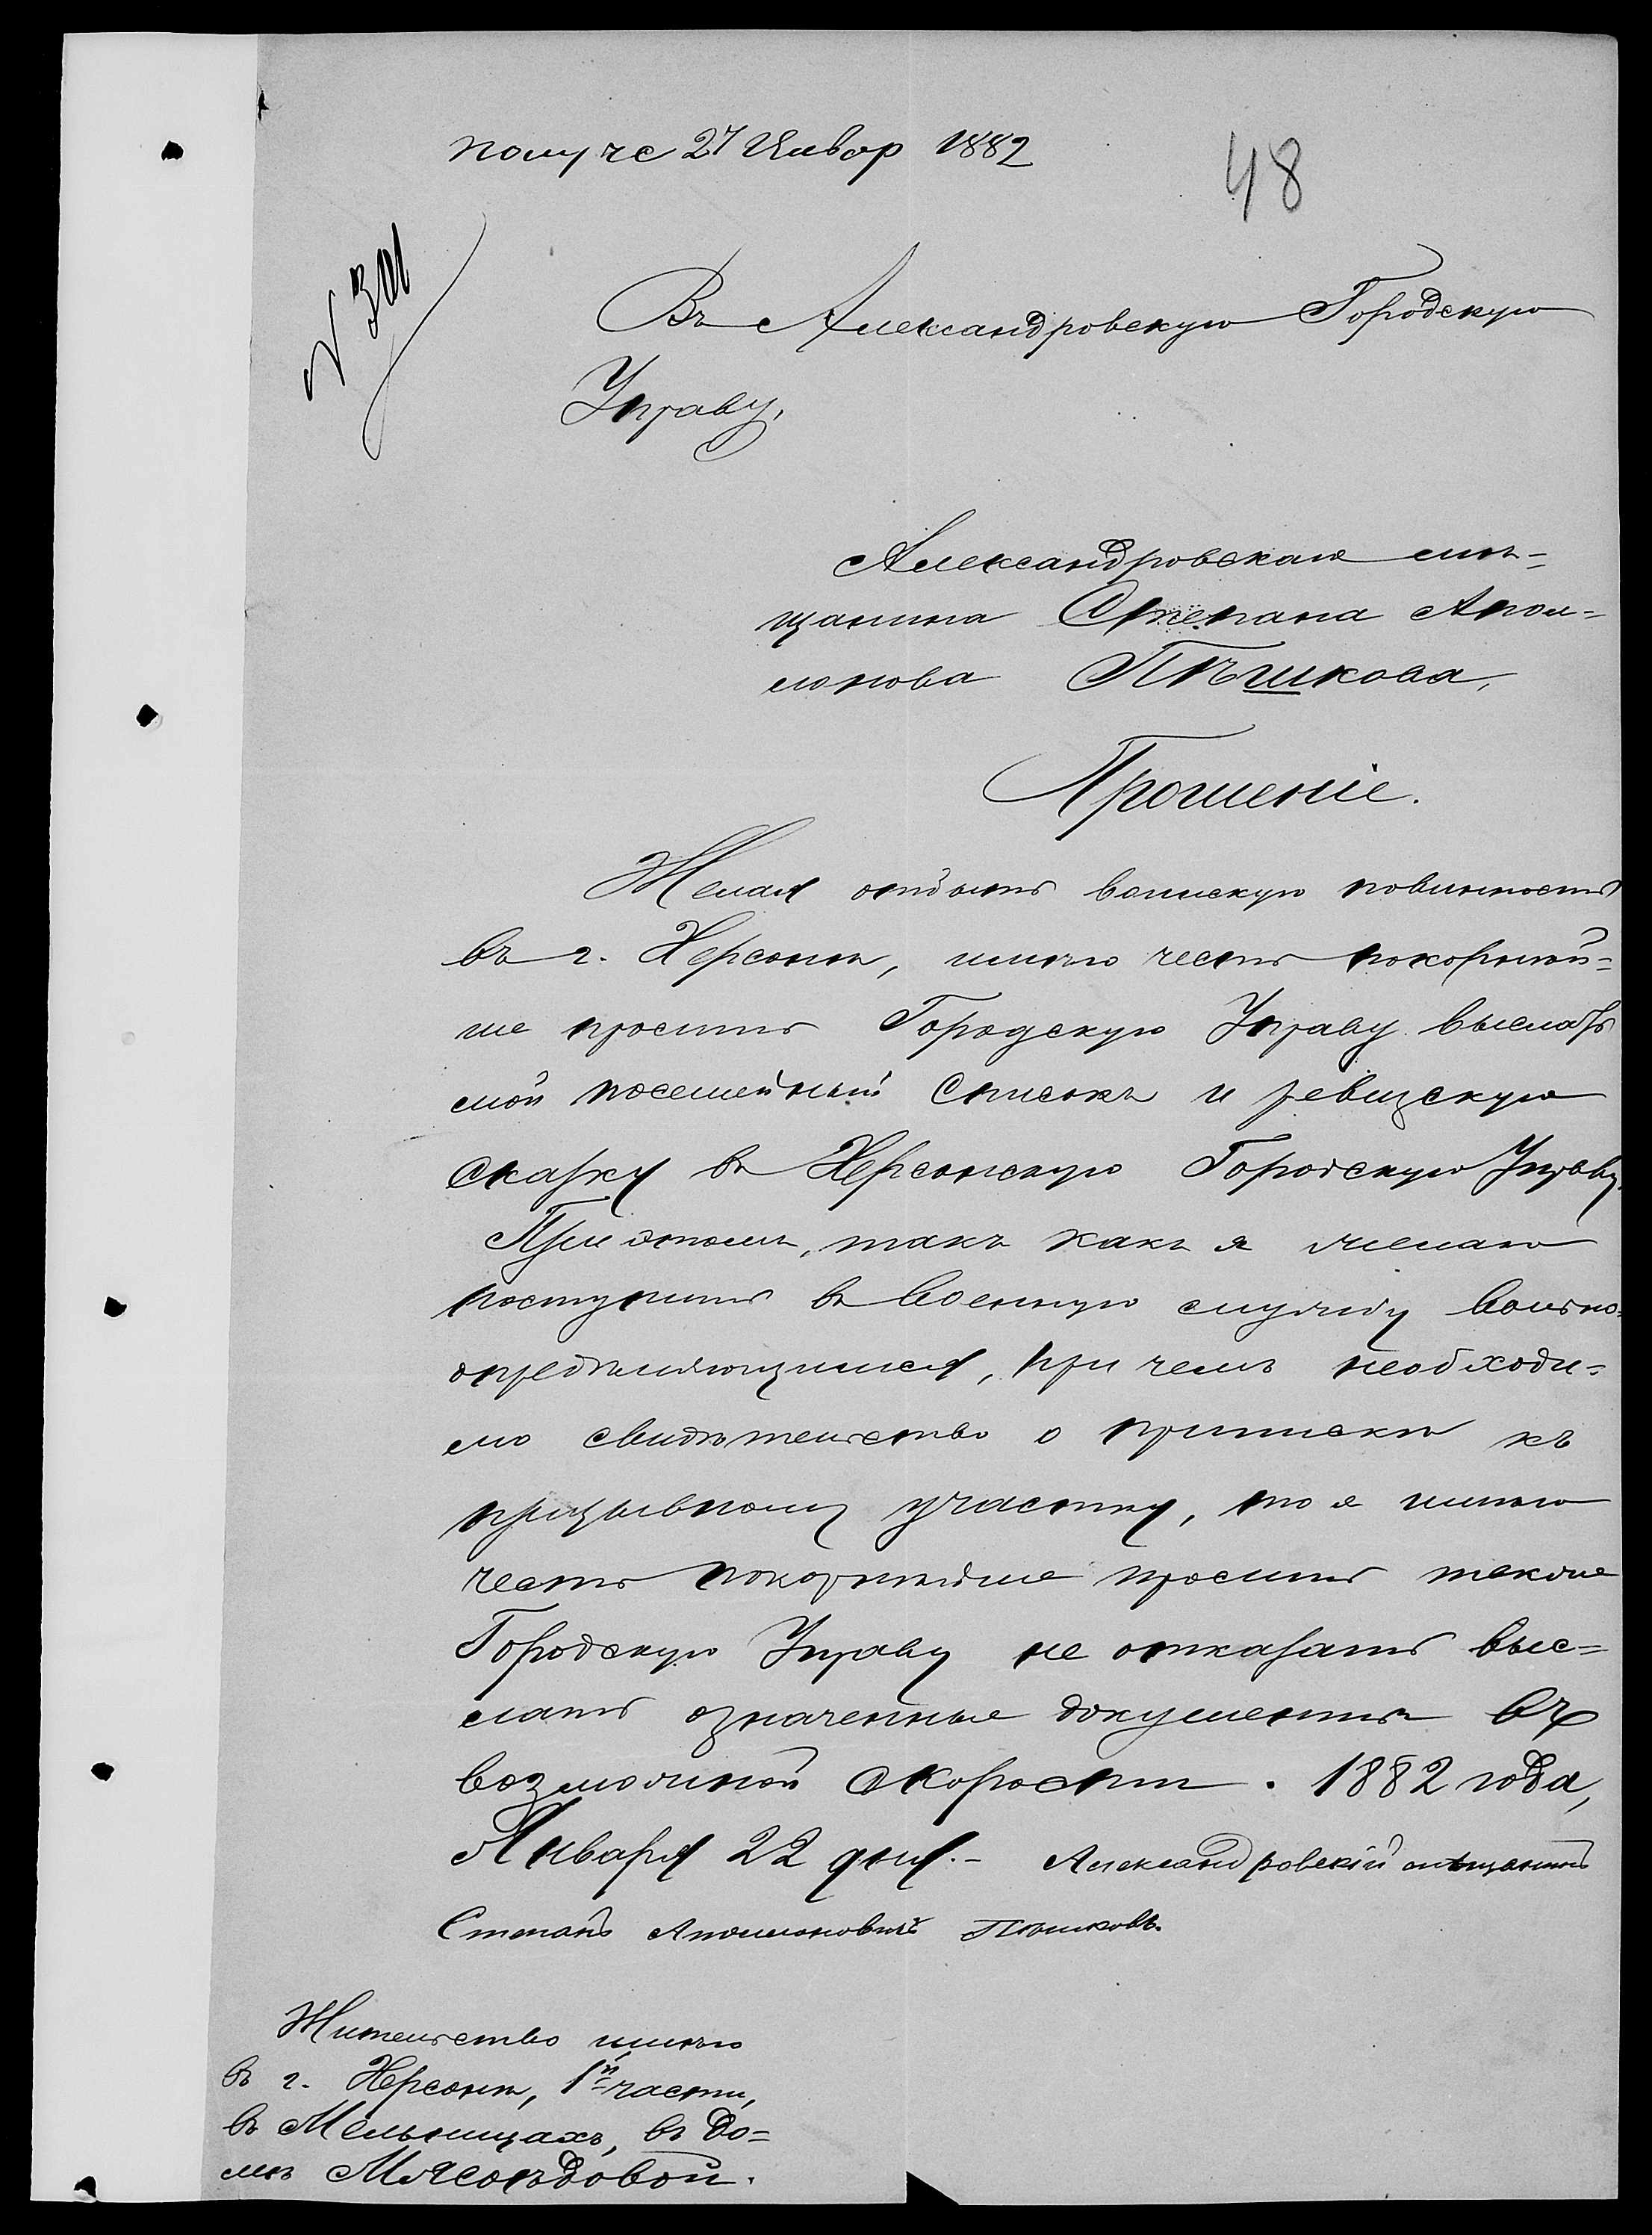 получе 27 Январ 1882
48
№ 301
Въ Александровскую Городскую
Управу,
Александровскаго мѣ-
щанина Степана Апол-
лонова Пѣшкова,
Прошеніе.
Желая отбыть воинскую повинность
въ г. Херсонѣ, имѣю честь покорнѣй-
ше просить Городскую Управу выслать
мой посемейный списокъ и ревизскую
сказку въ Херсонскую Городскую Управу.
При этомъ, такъ какъ я желаю
поступить въ военную службу вольно-
опредѣляющимся, при чемъ необходи-
мо свидѣтельство о припискѣ къ
призывному участку, то я имѣю
честь покорнѣйше просить также
Городскую Управу не отказать выс-
лать означенные документы въ
возможной скорости. 1882 года,
Января 22 дня.- Александровскій мѣщанинъ
Степанъ Аполлоновичъ Пѣшковъ.
Жительство имѣю
въ г. Херсонѣ, 1й части,
въ Мельницахъ, въ до-
мѣ Мясоѣдовой.